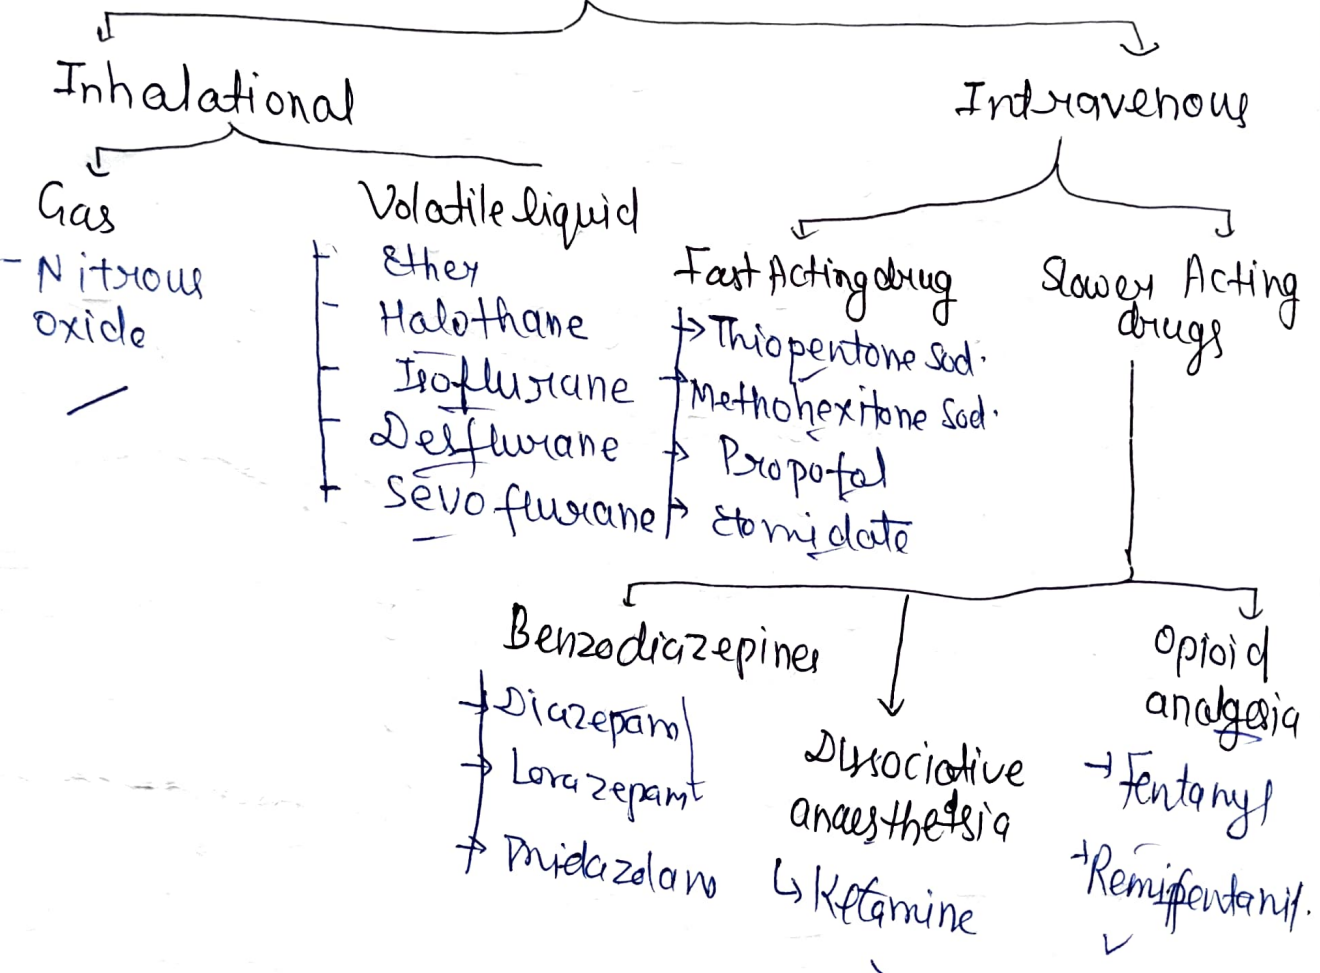 Inhalational
Intravenous
Gas
- Nitrous
oxide
Volatile liquid
Ether
Halothane
Isoflurane
Desflurane
Sevoflurane
Fast Acting drug
→ Thiopentone Sod.
→ Methohexitone Sod.
→ Propofol
→ Etomidate
Slower Acting
drugs
Benzodiazepines
→ Diazepam
→ Lorazepam
→ Midazolam
Dissociative
anaesthetsia
↳ Ketamine
Opioid
analgesia
→ Fentanyl
→ Remifentanil.